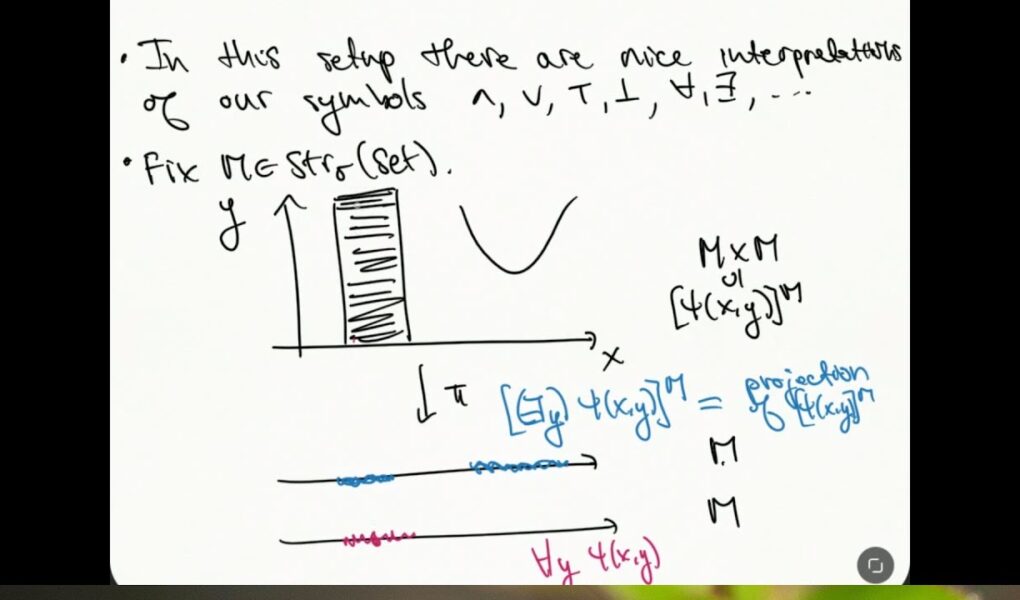 • In this setup there are nice interpretations
of our symbols ∧, ∨, ⊤, ⊥, ∀, ∃, ...
• Fix M ∈ Str_σ(Set).
y
M × M
∪I
[ψ(x,y)]^M
x
π
[(∃y) ψ(x,y)]^M = projection
of [ψ(x,y)]^M
M
M
∀y ψ(x,y)